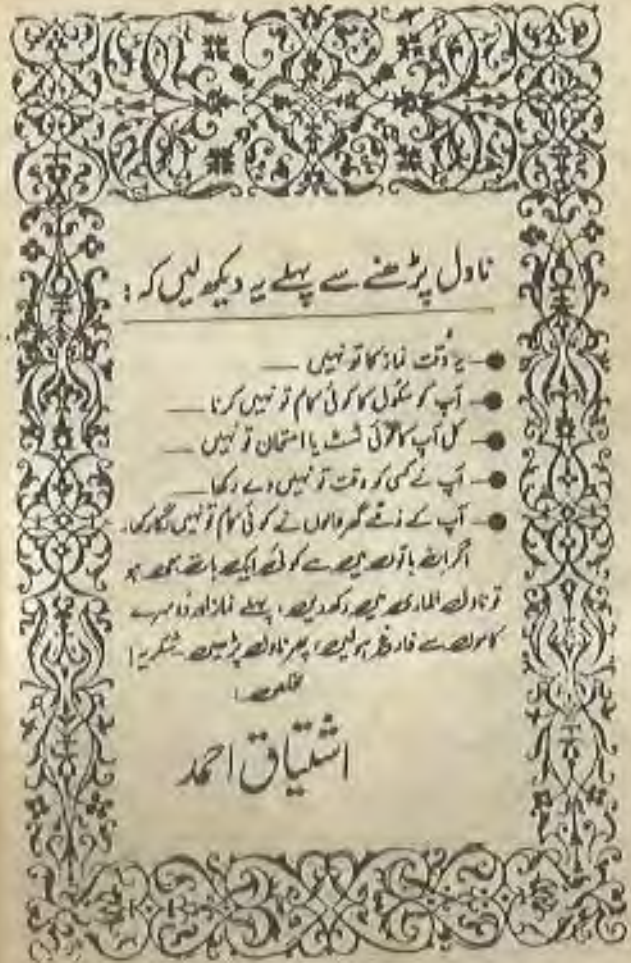 ناول پڑھنے سے پہلے یہ دیکھ لیں کہ :
یہ وقت نماز کا تو نہیں ——
آپ کو سکول کا کوئی کام تو نہیں کرنا ——
کل آپ کا کوئی ٹسٹ یا امتحان تو نہیں ——
آپ نے کسی کو وقت تو نہیں دے رکھا ——
آپ کے ذمے گھر والوں نے کوئی کام تو نہیں لگا رکھا۔
اگر ان باتوں میں سے کوئی ایک بات بھی ہو
تو ناول الماری میں رکھ دیں، پہلے نماز اور دوسرے
کاموں سے فارغ ہولیں، پھر ناول پڑھیں۔ شکریہ!
مخلص :
اشتیاق احمد